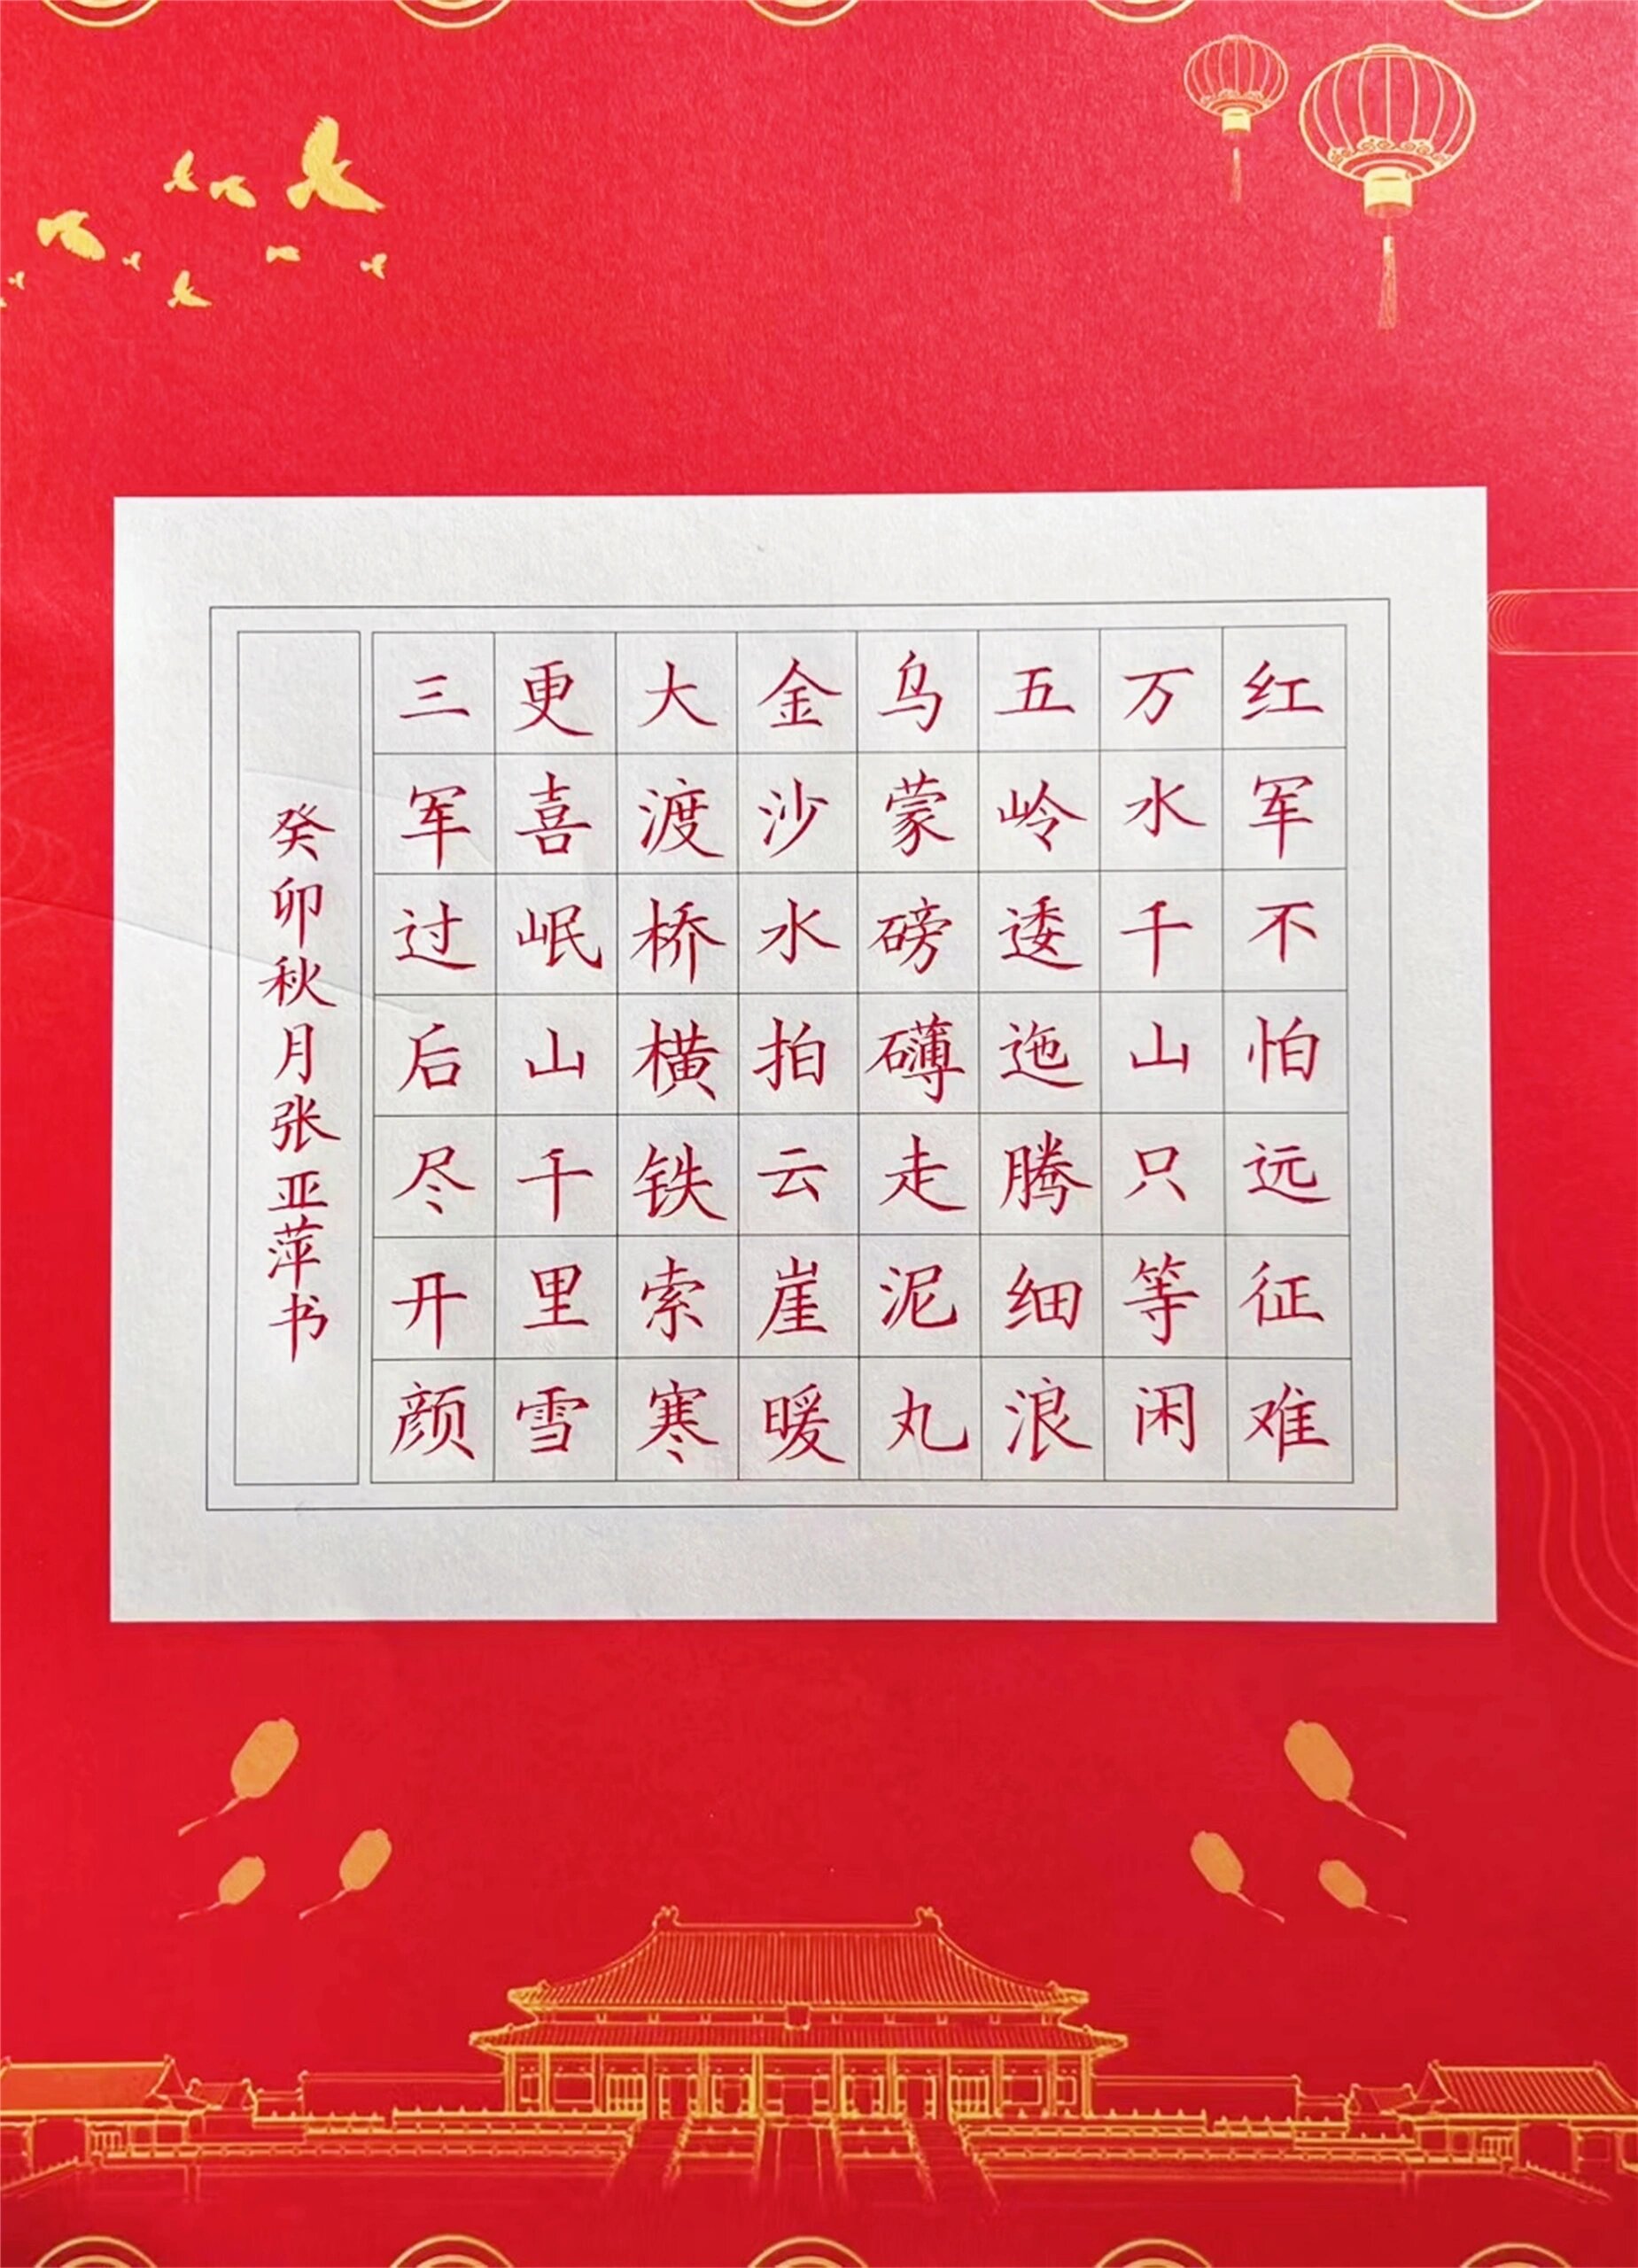 红军不怕远征难
万水千山只等闲
五岭逶迤腾细浪
乌蒙磅礴走泥丸
金沙水拍云崖暖
大渡桥横铁索寒
更喜岷山千里雪
三军过后尽开颜
癸卯秋月张亚萍书